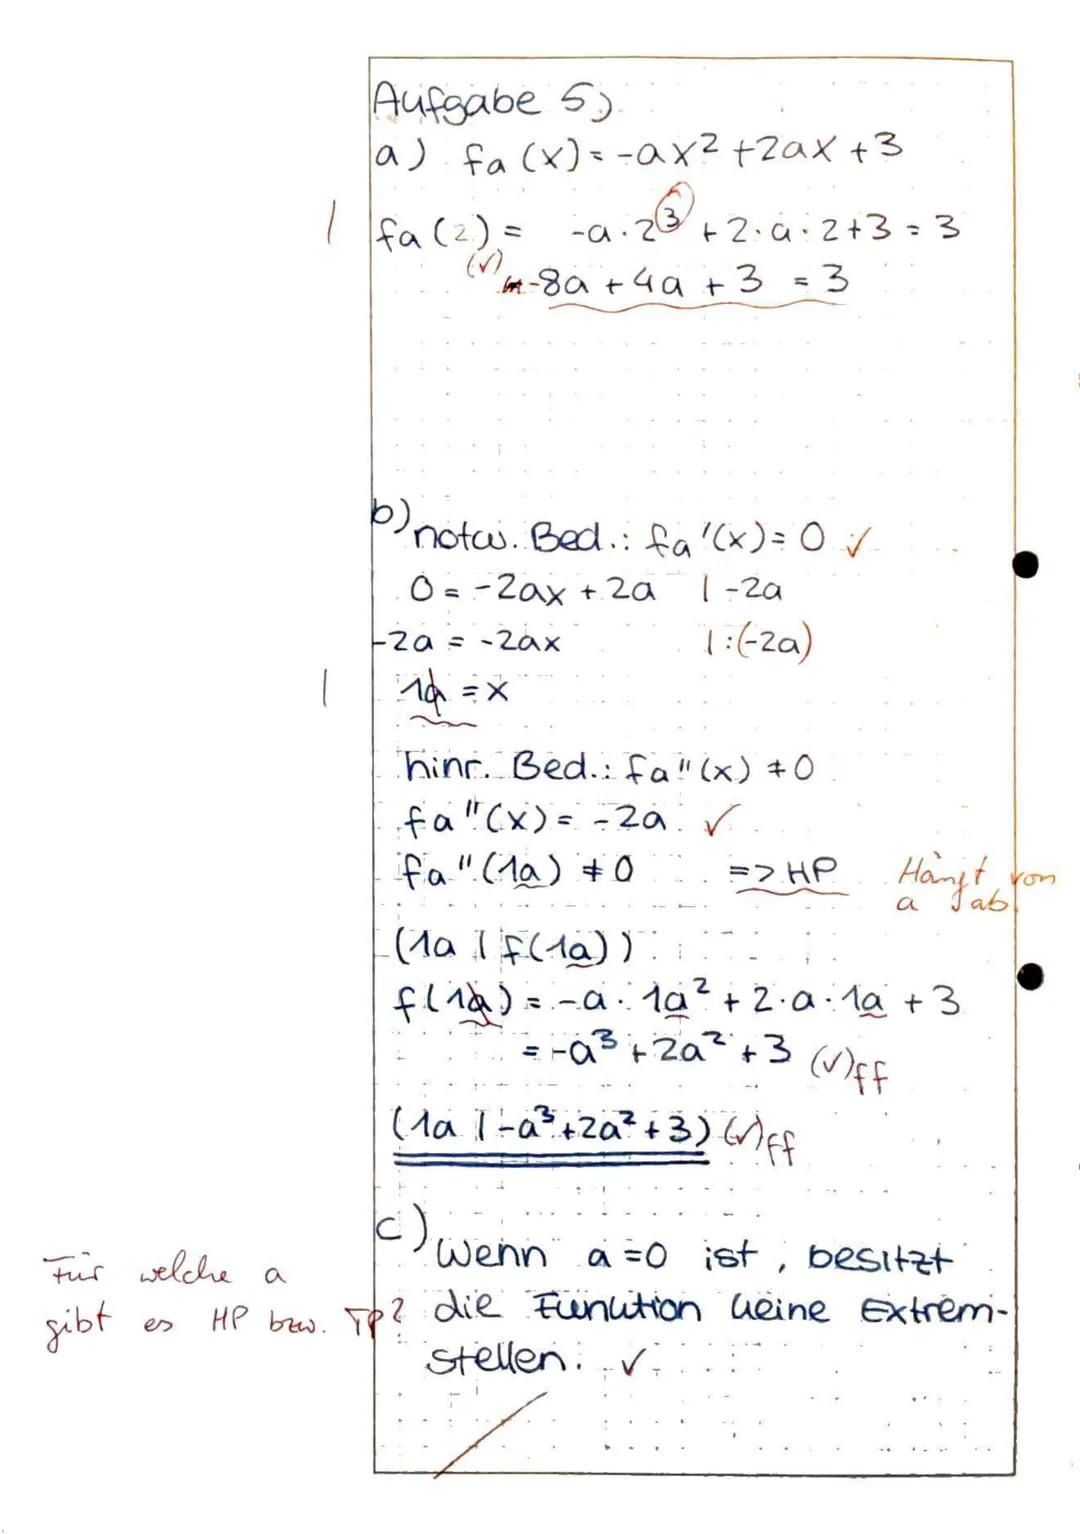 Aufgabe 5)
a) fa (x) = -ax² + 2ax + 3
| fa (2) = -a · 2³ + 2 · a · 2 + 3 = 3
(✓) -8a + 4a + 3 = 3
b) notw. Bed.: fa'(x) = 0 ✓
0 = -2ax + 2a | -2a
-2a = -2ax | :(-2a)
| 1a = x
hinr. Bed.: fa''(x) ≠ 0
fa''(x) = -2a ✓
fa''(1a) ≠ 0 => HP Hängt von
a ab!
(1a | f(1a))
f(1a) = -a · 1a² + 2 · a · 1a + 3
= -a³ + 2a² + 3 (✓)ff
(1a | -a³ + 2a² + 3) (✓)ff
c) Wenn a = 0 ist, besitzt
Für welche a
die Funktion keine Extrem-
gibt es HP bzw. TP?
stellen. ✓